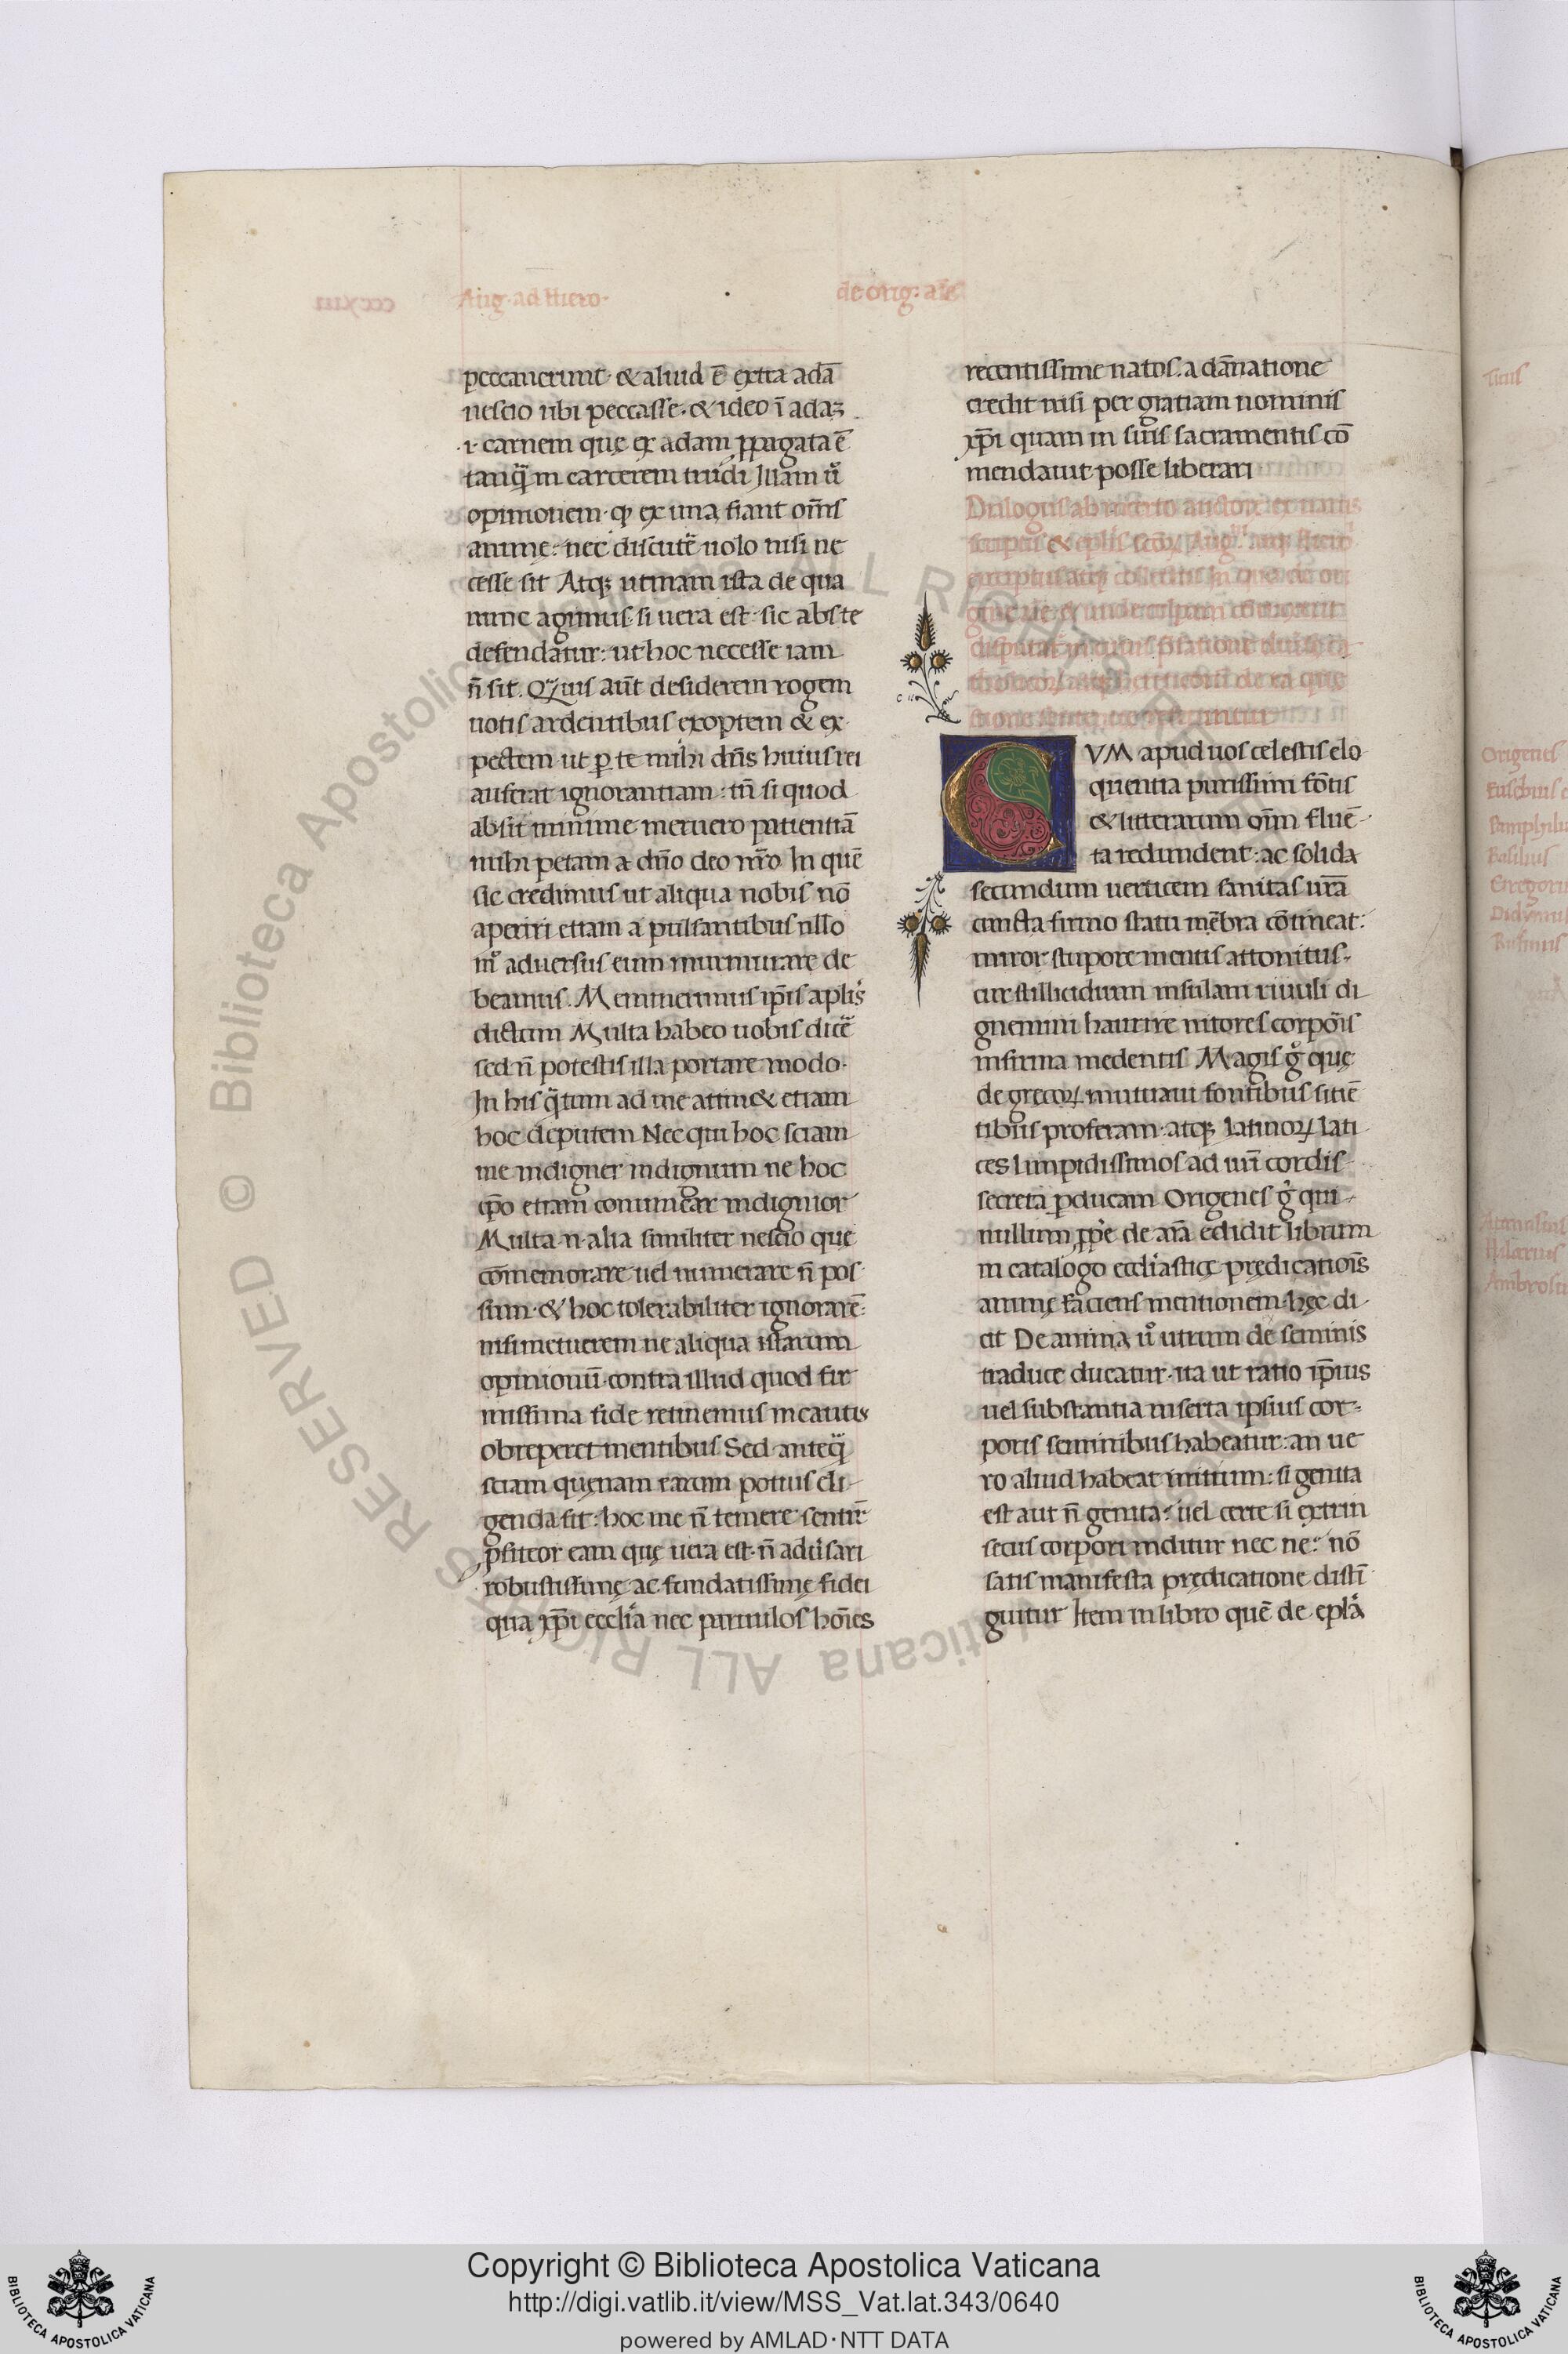 Aug. ad Hiero.
de orig. aīe
peccauerunt. & aliud ē extra adā
nescio ubi peccasse. & ideo ī adaꝫ
.i. carnem quę ex adam ꝓpagata ē
tanq̃ in carcerem trudi Illam ů
opinionem. ꝙ ex una fiant om̄s
animę: nec discutẽ uolo nisi ne
cesse sit Atqꝫ utinam ista de qua
nunc agimus. si uera est. sic abs te
defendatur: ut hoc necesse iam
n̄ sit. Quis aūt desiderem rogem
uotis ardentibus exoptem & ex
pectem ut ꝑ te mihi dn̄s huius rei
auferat ignorantiam: tn̄ si quod
absit minime meruero patientiā
mihi petam a dn̄o deo nr̄o In quē
sic credimus ut aliqua nobis nō
aperiri etiam a pulsantibus ullo
m̊ aduersus eum murmurare de
beamus. Meminerimus ip̄is aplis
dictum Multa habeo uobis dicẽ
sed n̄ potestis illa portare modo.
In his q̃tum ad me attin& etiam
hoc deputem Nec qui hoc sciam
me indigner indignum ne hoc
ip̄o etiam conuincar indignior
Multa n. alia similiter nescio que
cōmemorare uel numerare n̄ pos
sum. & hoc tolerabiliter ignorarē:
nisi metuerem ne aliqua istarum
opinionū. contra illud quod fir
missima fide retinemus incautis
obreperet mentibus Sed anteq̃
sciam quęnam earum potius eli
genda sit: hoc me n̄ temere sentir̄
ꝓfiteor eam quę uera est. n̄ adu̓sari
robustissimę ac fundatissimę fidei
qua xp̄i eccl̓ia nec paruulos hōīes
recentissime natos. a dānatione
credit nisi per gratiam nominis
xp̄i quam in suis sacramentis cō
mendauit posse liberari
VM apud uos celestis elo
quentia purissimi fōtis
& litterarum om̄m fluē
ta redundent: ac solida
secundum uerticem sanitas ur̄a
cuncta firmo statu mēbra cōtineat:
miror stupore mentis attonitus.
cur stillicidium insulam riuuli di
gnemini haurire nitores corporis
infirma medentis Magis g̊ quę
de grecoꝝ mutuaui fontibus sitiē
tibus proferam. atqꝫ latinoꝝ lati
ces limpidissimos ad ur̄i cordis
secreta ꝑducam Origenes g̊ qui
nullum ꝓp̓e de aīa edidit librum
in catalogo eccl̓iasticę prędicatiōis
animę faciens mentionem. hęc di
cit De anima ů utrum de seminis
traduce ducatur. ita ut ratio ip̄ius
uel substantia inserta ipsius cor
poris seminibus habeatur: an ue
ro aliud habeat initium: si genita
est aut n̄ genita: uel certe si extrin
secus corpori inditur nec ne: nō
satis manifesta prędicatione distī
guitur Item in libro quē de epl̓a
Titus
Origenes
Pamphilu
Basilius
Gregoriu
Rufinus
Hilarius
Ambrosiu
Copyright © Biblioteca Apostolica Vaticana
http://digi.vatlib.it/view/MSS_Vat.lat.343/0640
powered by AMLAD·NTT DATA
© Biblioteca Apostolica Vaticana ALL RIGHTS RESERVED
BIBLIOTECA APOSTOLICA VATICANA
BIBLIOTECA APOSTOLICA VATICANA